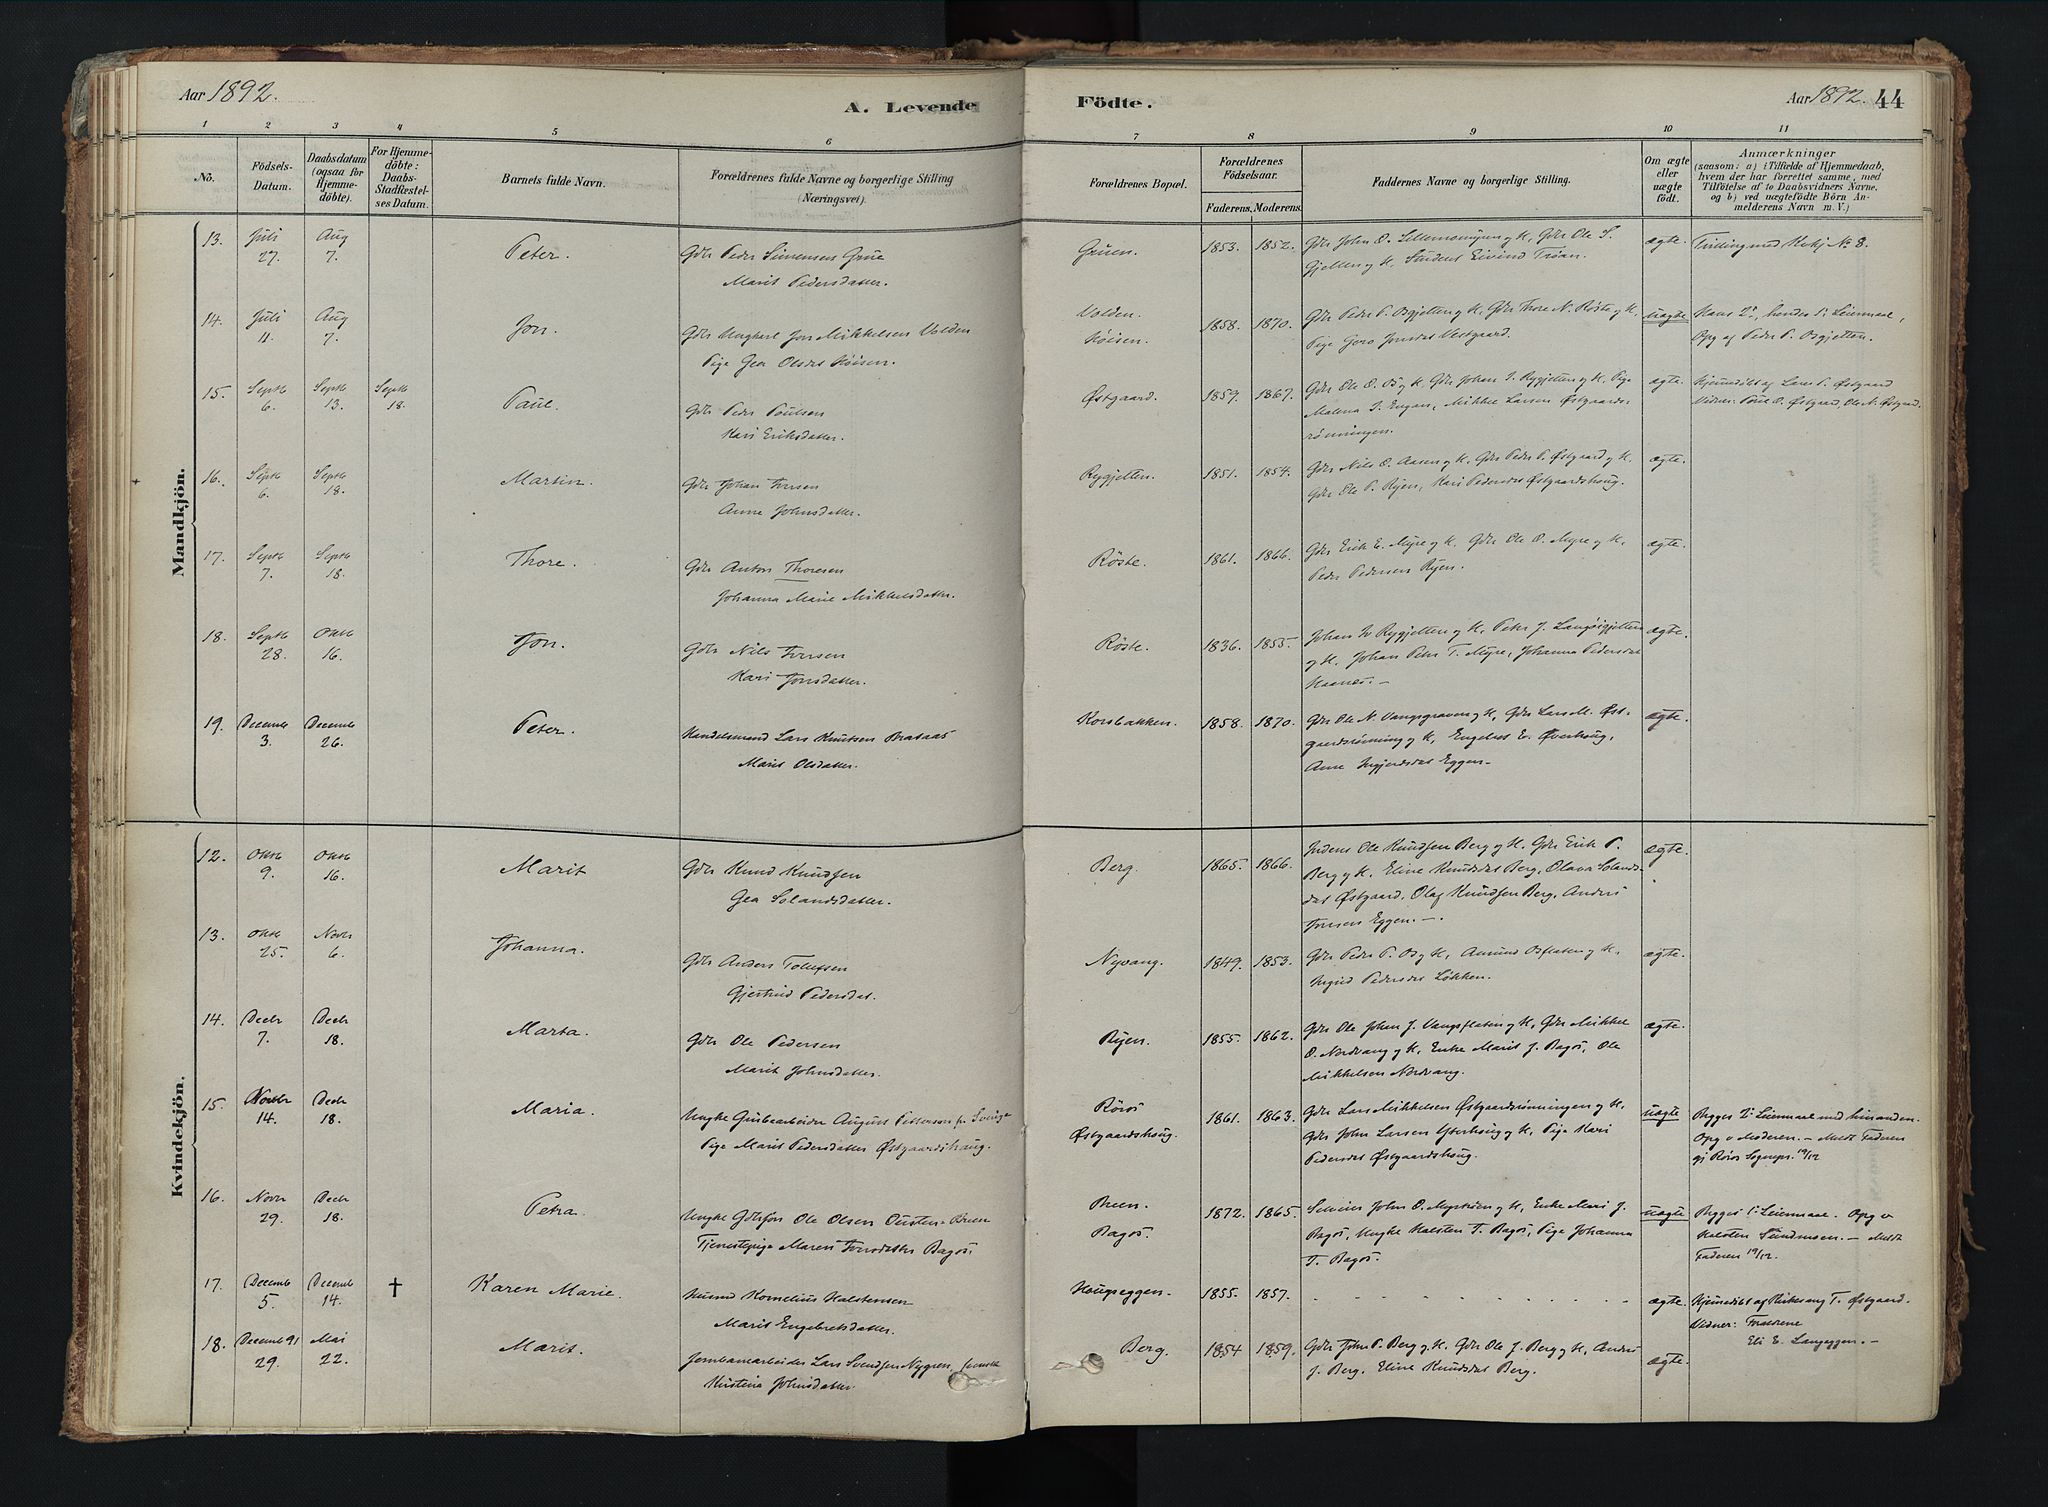 Aar 1892.
A. Levende Födte.
Aar 1892. 44
1 2 3 4 5 6 7 8 9 10 11
No.
Födsels-Datum.
Daabsdatum (ogsaa for Hjemme-döbte).
For Hjemme-döbte: Daabs-Stadfæstel-ses Datum.
Barnets fulde Navn.
Forældrenes fulde Navne og borgerlige Stilling (Næringsvei).
Forældrenes Bopæl.
Forældrenes Födselsaar.
Faderens. Moderens.
Faddernes Navne og borgerlige Stilling.
Om ægte eller uægte födt.
Anmærkninger
(saasom: a) i Tilfælde af Hjemmedaab,
hvem der har forrettet samme, med
Tilföielse af to Daabsvidners Navne,
og b) ved uægtefödte Börn An-
melderens Navn m. V.)
Mandkjön.
13. Juli 27. Aug 7. Peter. Gdr Peder Simensen Grue
Marit Pedersdatter.
Gruen. 1853. 1852. Gdr John O. Lillemoeyen og K, Gdr Ole S.
Gjelten og K, Student Eivind Trøan.
ægte. Tvilling med Kvkj No 8.
14. Juli 11. Aug 7. Jon. Gdr Ungkarl Jon Mikkelsen Volden
Pige Gea Olsdat Höisen.
Volden. Höisen. 1858. 1870. Gdr Peder P. Osgjetten og K, Gdr Thore N. Röste og K,
Pige Goro Jonsdat Vestgaard.
uægte Hans 2', hendes 1' Leiermaal,
Opg af Peder P. Osgjetten.
15. Septb 6. Septb 13. Septb 18. Paul. Gdr Peder Poulsen
Kari Eriksdatter.
Østgaard. 1859. 1867. Gdr Ole O. Os og K, Gdr Johan I. Rygjetten og K, Pige
Malena I. Engan, Mikkel Larsen Østgaards-
rönningen.
ægte. Hjemmedöbt af Lars P. Østgaard
Vidner: Poul O. Østgaard, Ole N. Østgaard.
16. Septb 6. Septb 18. Martin. Gdr Johan Iversen
Anne Johnsdatter.
Rygjetten. 1851. 1854. Gdr Nils O. Aasen og K, Gdr Peder P. Østgaard og K,
Gdr Ole P. Ryen, Kari Pedersdat Østgaardshoug.
ægte.
17. Septb 7. Septb 18. Thore. Gdr Anton Thoresen
Johanna Marie Mikkelsdatter.
Röste. 1861. 1866. Gdr Erik E. Myre og K, Gdr Ole O. Myre og K,
Peder Pedersen Ryen.
ægte.
18. Septb 28. Oktb 16. Jon. Gdr Nils Iversen
Kari Jonsdatter.
Röste. 1836. 1855. Johan Iv Rygjetten og K, Peter J. Langöigjetten
og K, Johan Peter T. Myre, Johanna Pedersdat
Haanes. -
ægte.
19. Decemb 3. Decemb 26. Peter. Handelsmand Lars Knutsen Brataas
Marit Olsdatter.
Korsbakken. 1858. 1870. Gdr Ole N. Vangsgraven og K, Gdr Lars M. Øst-
gaardsrönning og K, Engebret E. Øverhoug,
Anne Ingjerdsdat Eggen-
ægte.
Kvindekjön.
12. Oktb 9. Oktb 16. Marit Gdr Knud Knudsen
Gea Solandsdatter.
Berg. 1865. 1866. Inders Ole Knudsen Berg og K, Gdr Erik P.
Berg og K, Eline Knudsdat Berg, Olava Solands-
dat Østgaard, Olaf Knudsen Berg, Anders
Jonsen Eggen. -
ægte.
13. Oktb 25. Novb 6. Johanna. Gdr Anders Tollefsen
Gjertrud Pedersdat.
Nyvang. 1849. 1853. Gdr Peder P. Os og K, Amund Osflaten og K,
Ingrid Pedersdat Løkken.
ægte.
14. Decbr 7. Decbr 18. Marta. Gdr Ole Pedersen
Marit Johnsdatter.
Ryen. 1855. 1862. Gdr Ole Johan J. Vangsflaten og K, Gdr Mikkel
O. Nordvang og K, Enke Marit J. Bagös, Ole
Mikkelsen Nordvang.
ægte.
15. Novbr 14. Decbr 18. Maria. Ungke Grubearbeider August Pettersson fr Sverige
Pige Marit Pedersdatter Østgaardshaug.
Röros Østgaardshoug. 1861. 1863. Gdr Lars Mikkelsen Østgaardsrönningen og K,
Gdr John Larsen Ytterhoug og K, Pige Kari
Pedersdat Østgaardshoug.
uægte Begges 2' Leiermaal med hinanden.
Opg v Moderen. - Meldt Faderen
gj Röros Sognepr. 19/12
16. Novbr 29. Decbr 18. Petra. Ungke Gdrsön Ole Olsen Ousten-Breen
Tjenestepige Maren Iversdatter Bagös.
Breen. Bagös. 1872. 1865. Selveier John O. Myrmoen og K, Enke Mari J.
Bagös, Ungke Halsten T. Bagös, Pige Johanna
T. Bagös.
uægte Begges 1' Leiermaal. Opg v
Halsten Simensen. - Meldt
Faderen 19/12.
17. Decemb 5. Decemb 14. † Karen Marie. Husmd Kornelius Halstensen
Marit Engebretsdatter.
Hougseggen. 1855. 1857. - - - - - - - -
ægte. Hjemmedöbt af Kirkesang T. Østgaard.
Vidner: Forældrene
Eli E. Langeggen. -
18. Decemb 91 29. Mai 22. Marit. Jernbanearbeider Lars Svendsen Nygren, svensk
Kristina Johnsdatter.
Berg. 1854 1859. Gdr John P. Berg og K, Gdr Ole J. Berg og K, Anders
J. Berg, Eline Knudsdat Berg.
ægte.